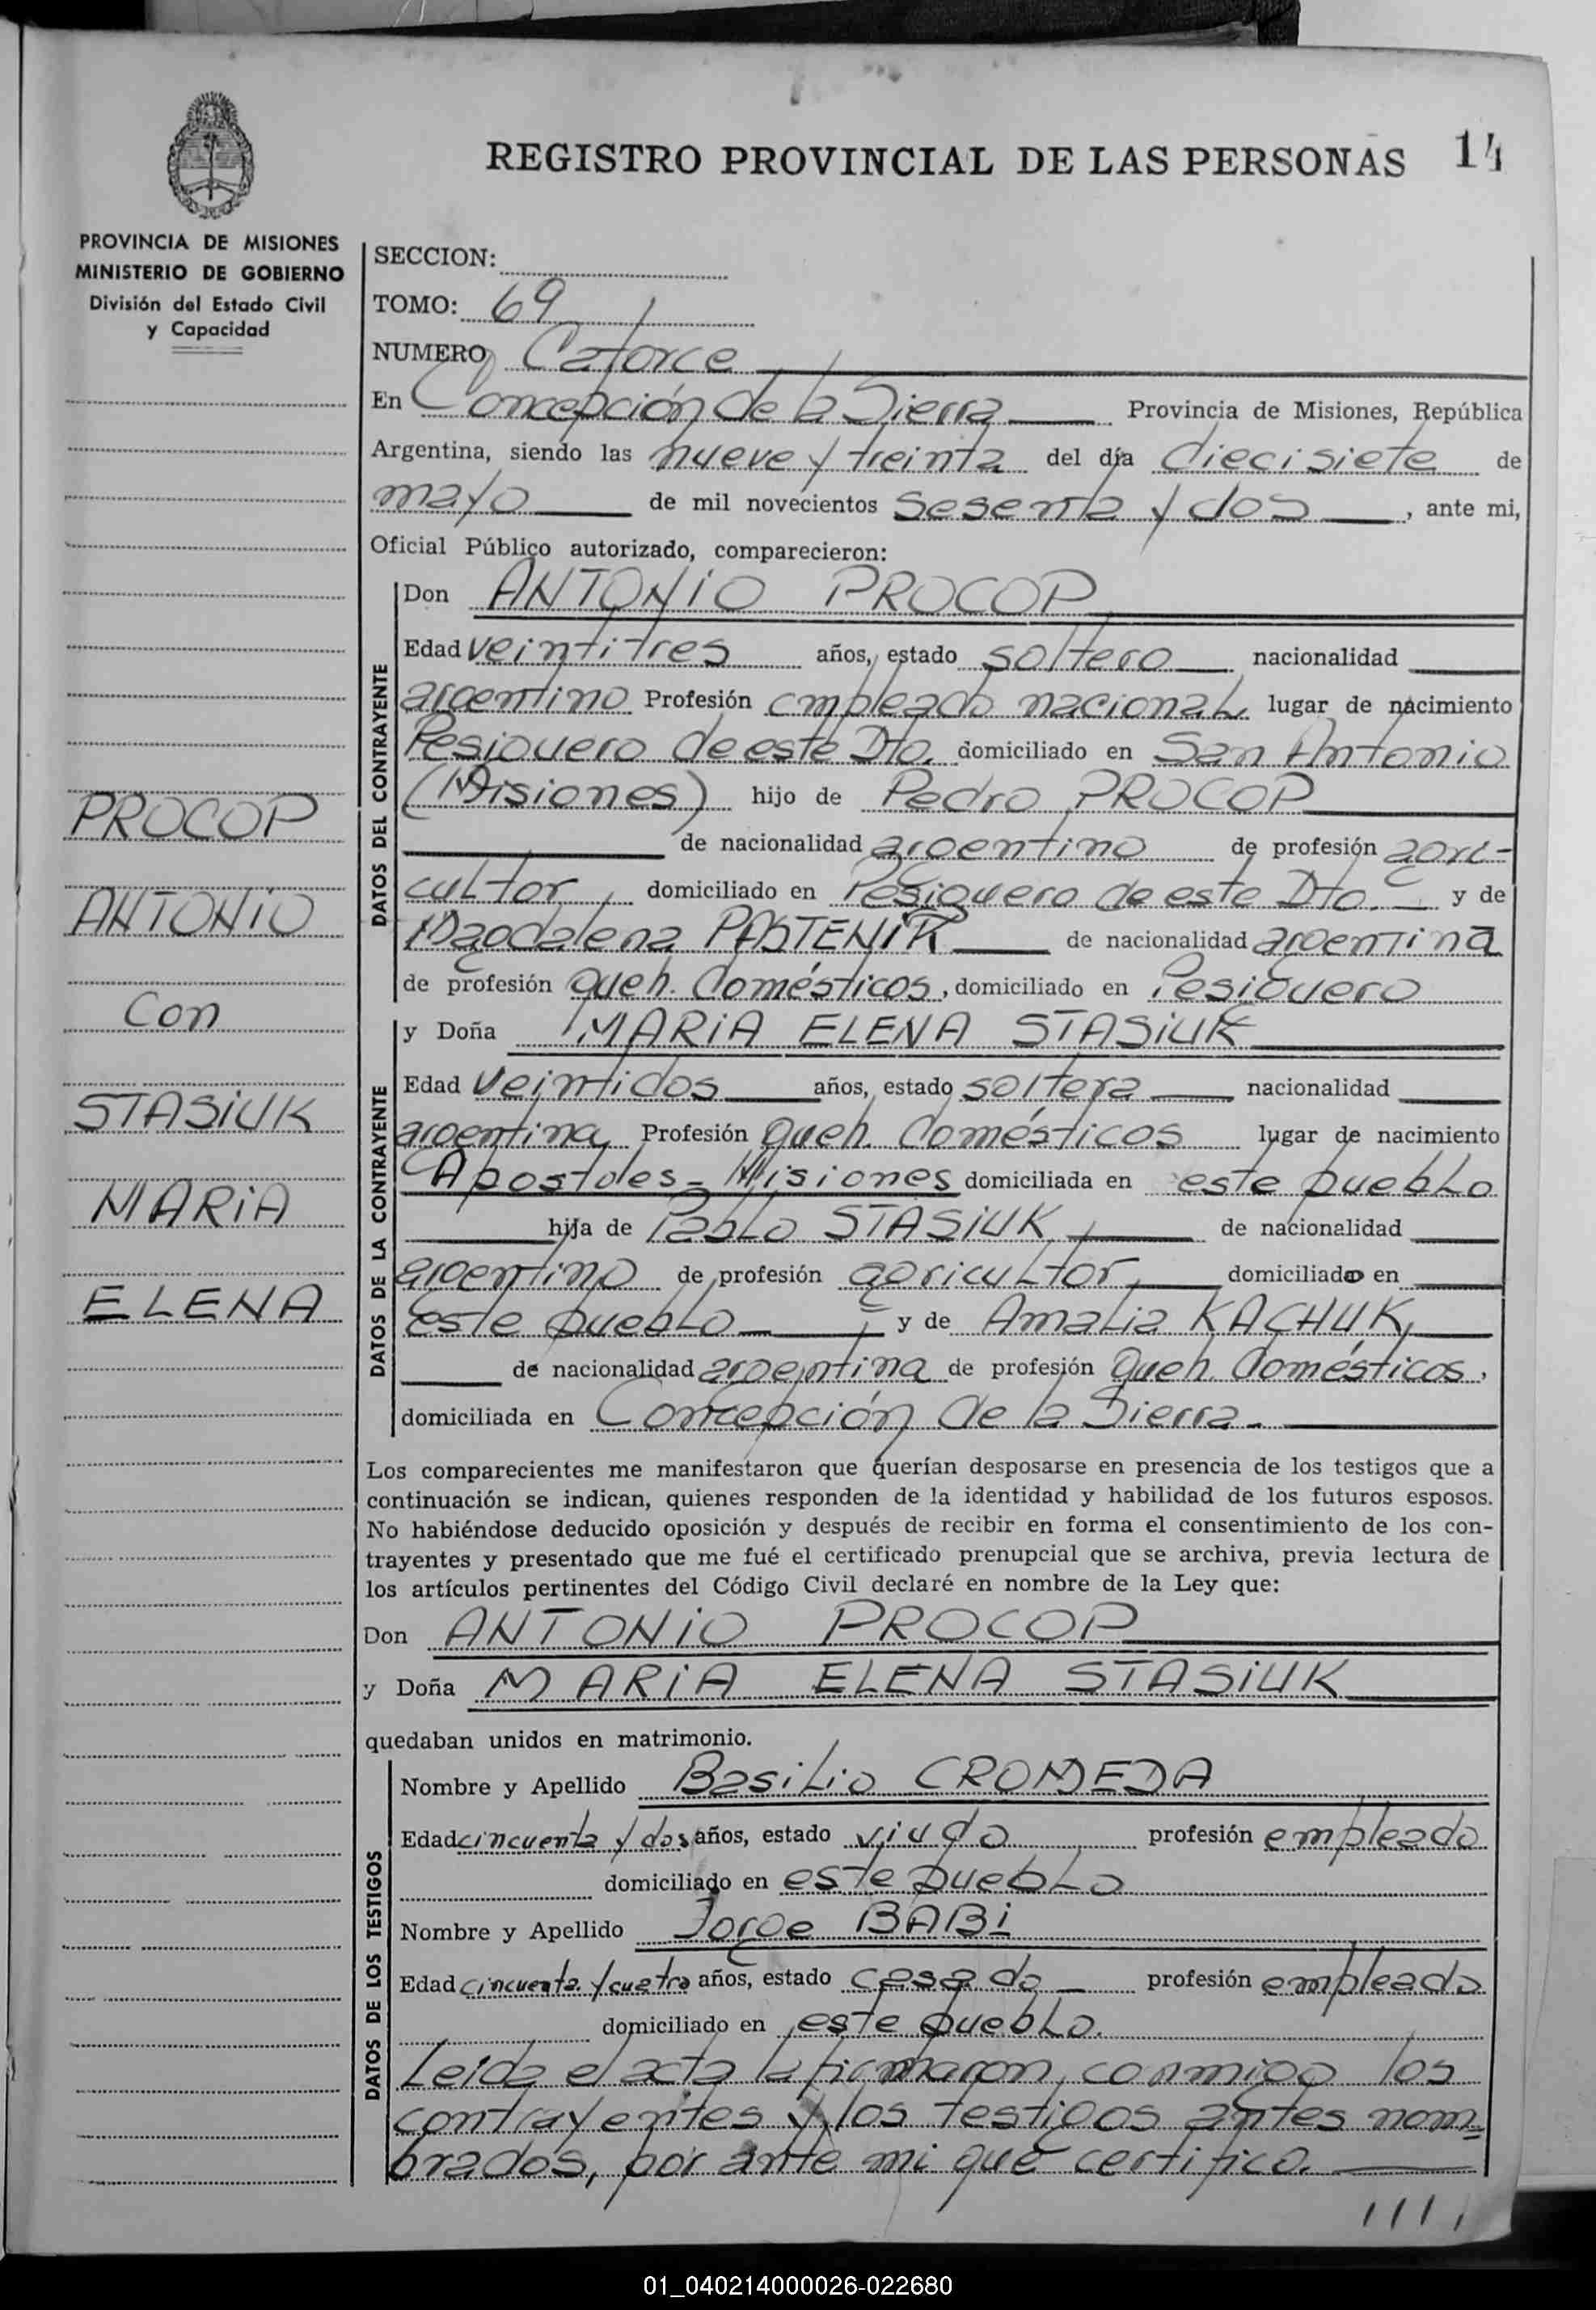 REGISTRO PROVINCIAL DE LAS PERSONAS 14
PROVINCIA DE MISIONES
MINISTERIO DE GOBIERNO
División del Estado Civil
y Capacidad
PROCOP
ANTONIO
Con
STASIUK
MARIA
ELENA
SECCION:
TOMO: 69
NUMERO Catorce
En Concepción de la Sierra Provincia de Misiones, República
Argentina, siendo las nueve y treinta del día diecisiete de
mayo de mil novecientos sesenta y dos, ante mi,
Oficial Público autorizado, comparecieron:
DATOS DEL CONTRAYENTE
Don ANTONIO PROCOP
Edad veintitres años, estado soltero nacionalidad
argentino Profesión empleado nacional, lugar de nacimiento
Persiguero de este Dto. domiciliado en San Antonio
(Misiones) hijo de Pedro PROCOP
de nacionalidad argentino de profesión agri-
cultor, domiciliado en Persiguero de este Dto. y de
Magdalena PASTENIK de nacionalidad argentina
de profesión queh. domésticos, domiciliado en Persiguero
DATOS DE LA CONTRAYENTE
y Doña MARIA ELENA STASIUK
Edad veintidos años, estado soltera nacionalidad
argentina Profesión queh. domésticos lugar de nacimiento
Apostoles - Misiones domiciliada en este pueblo
hija de Pablo STASIUK de nacionalidad
argentino de profesión agricultor, domiciliado en
este pueblo y de Amalia KACHUK,
de nacionalidad argentina de profesión queh. domésticos,
domiciliada en Concepción de la Sierra.
Los comparecientes me manifestaron que querían desposarse en presencia de los testigos que a
continuación se indican, quienes responden de la identidad y habilidad de los futuros esposos.
No habiéndose deducido oposición y después de recibir en forma el consentimiento de los con-
trayentes y presentado que me fué el certificado prenupcial que se archiva, previa lectura de
los artículos pertinentes del Código Civil declaré en nombre de la Ley que:
Don ANTONIO PROCOP
y Doña MARIA ELENA STASIUK
quedaban unidos en matrimonio.
DATOS DE LOS TESTIGOS
Nombre y Apellido Basilio CROMEDA
Edad cincuenta y dos años, estado viudo profesión empleado
domiciliado en este pueblo
Nombre y Apellido Jorge BABI
Edad cincuenta y cuatro años, estado casado profesión empleado
domiciliado en este pueblo.
Leida el acta la firmaron, conmigo los
contrayentes y los testigos antes nom-
brados, por ante mi que certifico.
01_040214000026-022680